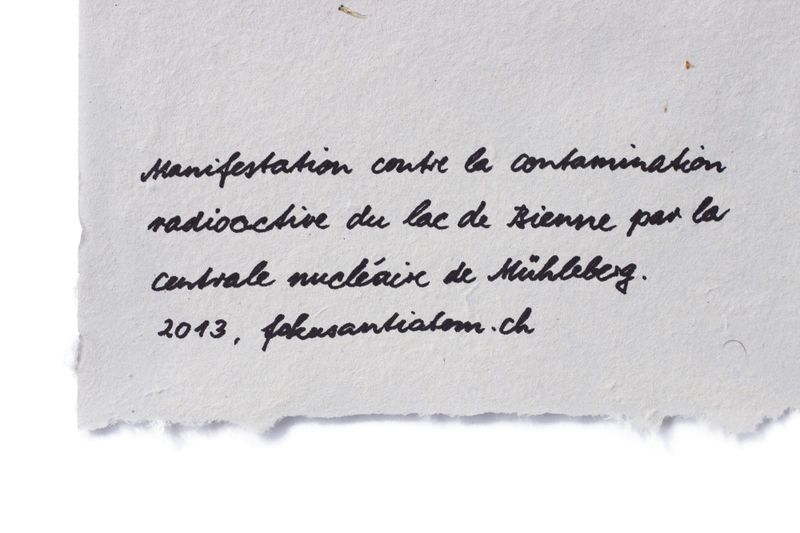 Manifestation contre la contamination
radioactive du lac de Bienne par la
centrale nucléaire de Mühleberg.
2013, fokusantiatom.ch